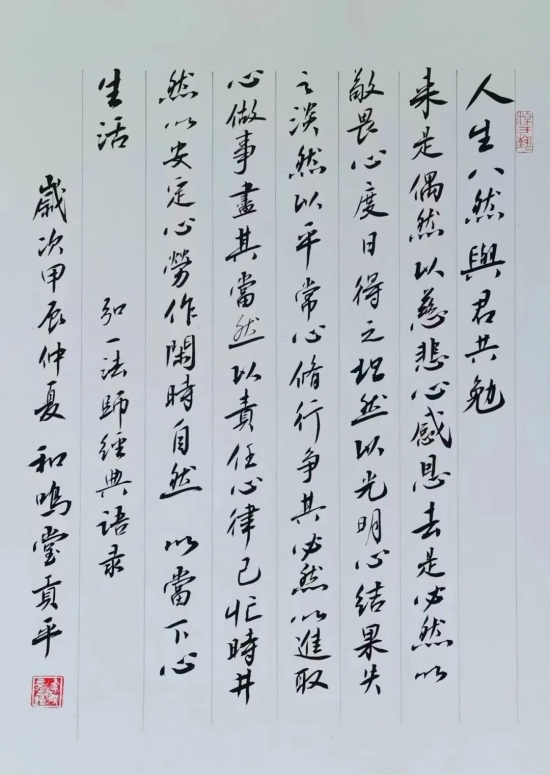 人生八然與君共勉
来是偶然以慈悲心感恩去是必然以
敬畏心度日得之坦然以光明心结果失
之淡然以平常心脩行争其必然以進取
心做事盡其當然以責任心律己忙時井
然以安定心勞作閑時自然以當下心
生活
弘一法師經典语录
歲次甲辰仲夏和鳴堂貢平